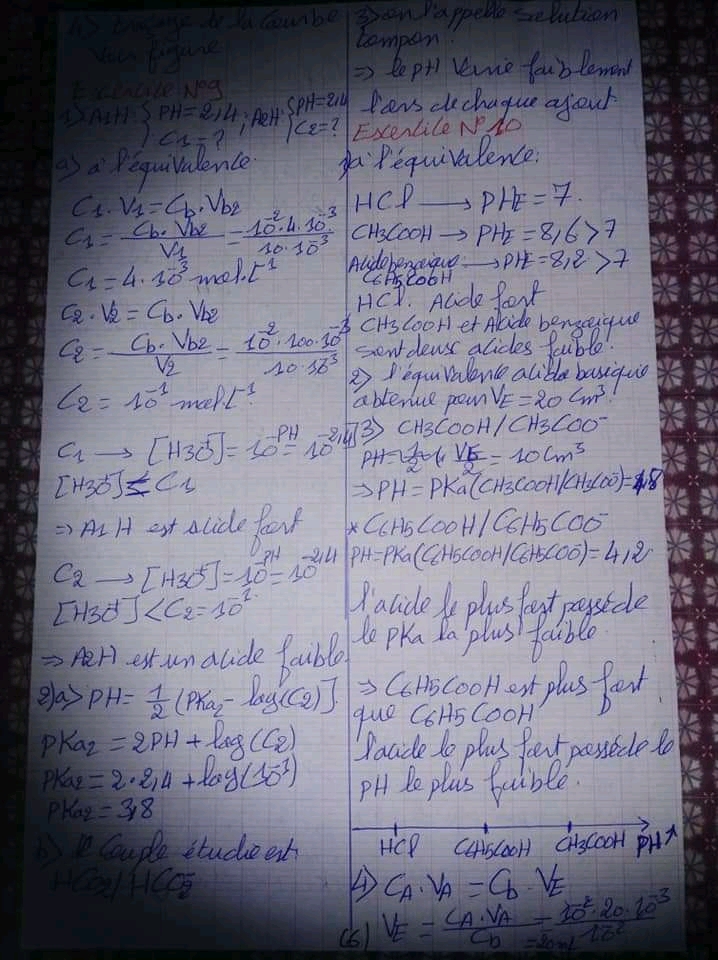 4) traçage de la Courbe
Voir figure
Exercice N°9
1) A1H: { PH=2,4 ; A2H: { PH=2,4
C1=? C2=?
a) à l'équivalence.
C1.V1=Cb.Vb2
C1 = Cb.Vb2 / V1 = 10⁻².4.10⁻³ / 10.10⁻³
C1=4.10⁻³ mol.L⁻¹
C2.V2=Cb.Vb2
C2 = Cb.Vb2 / V2 = 10⁻².100.10⁻³ / 10.10⁻³
C2=10⁻¹ mol.L⁻¹
C1 → [H3O⁺]=10⁻ᴾᴴ=10⁻²,⁴
[H3O⁺]≤C1
⇒ A1H est acide fort
C2 → [H3O⁺]=10⁻ᴾᴴ=10⁻²,⁴
[H3O⁺]<C2=10⁻¹
⇒ A2H est un acide faible
2)a) PH=1/2(PKa2-log(C2)).
PKa2=2PH+log(C2)
PKa2=2*2,4+log(10⁻¹)
PKa2=3,8
b) le Couple étudié est
HCO2/HCO2⁻
3) on l'appelle solution
tompon.
⇒ le pH Varie faiblement
lors de chaque ajout
Exercice N°10
1) à l'équivalence:
HCl → PHE=7.
CH3COOH → PHE=8,6>7
Acide benzoique → PHE=8,2>7
C6H5COOH
HCl. Acide fort
CH3COOH et Acide benzoique
sont deux acides faible.
2) l'équivalence acido basique
obtenue pour VE=20Cm³.
3) CH3COOH/CH3COO⁻
VE/2=10Cm³
⇒ PH=PKa(CH3COOH/CH3COO⁻)=4,8
*C6H5COOH/C6H5COO⁻
PH=PKa(C6H5COOH/C6H5COO⁻)=4,2
l'acide le plus fort possède
le PKa la plus faible.
⇒ C6H5COOH est plus fort
que C6H5COOH
l'acide le plus fort possède le
pH le plus faible.
HCl C6H5COOH CH3COOH PH
4) CA.VA = Cb.VE
(6) VE = CA.VA / Cb = 10⁻².20.10⁻³ / 10⁻²
=20mL